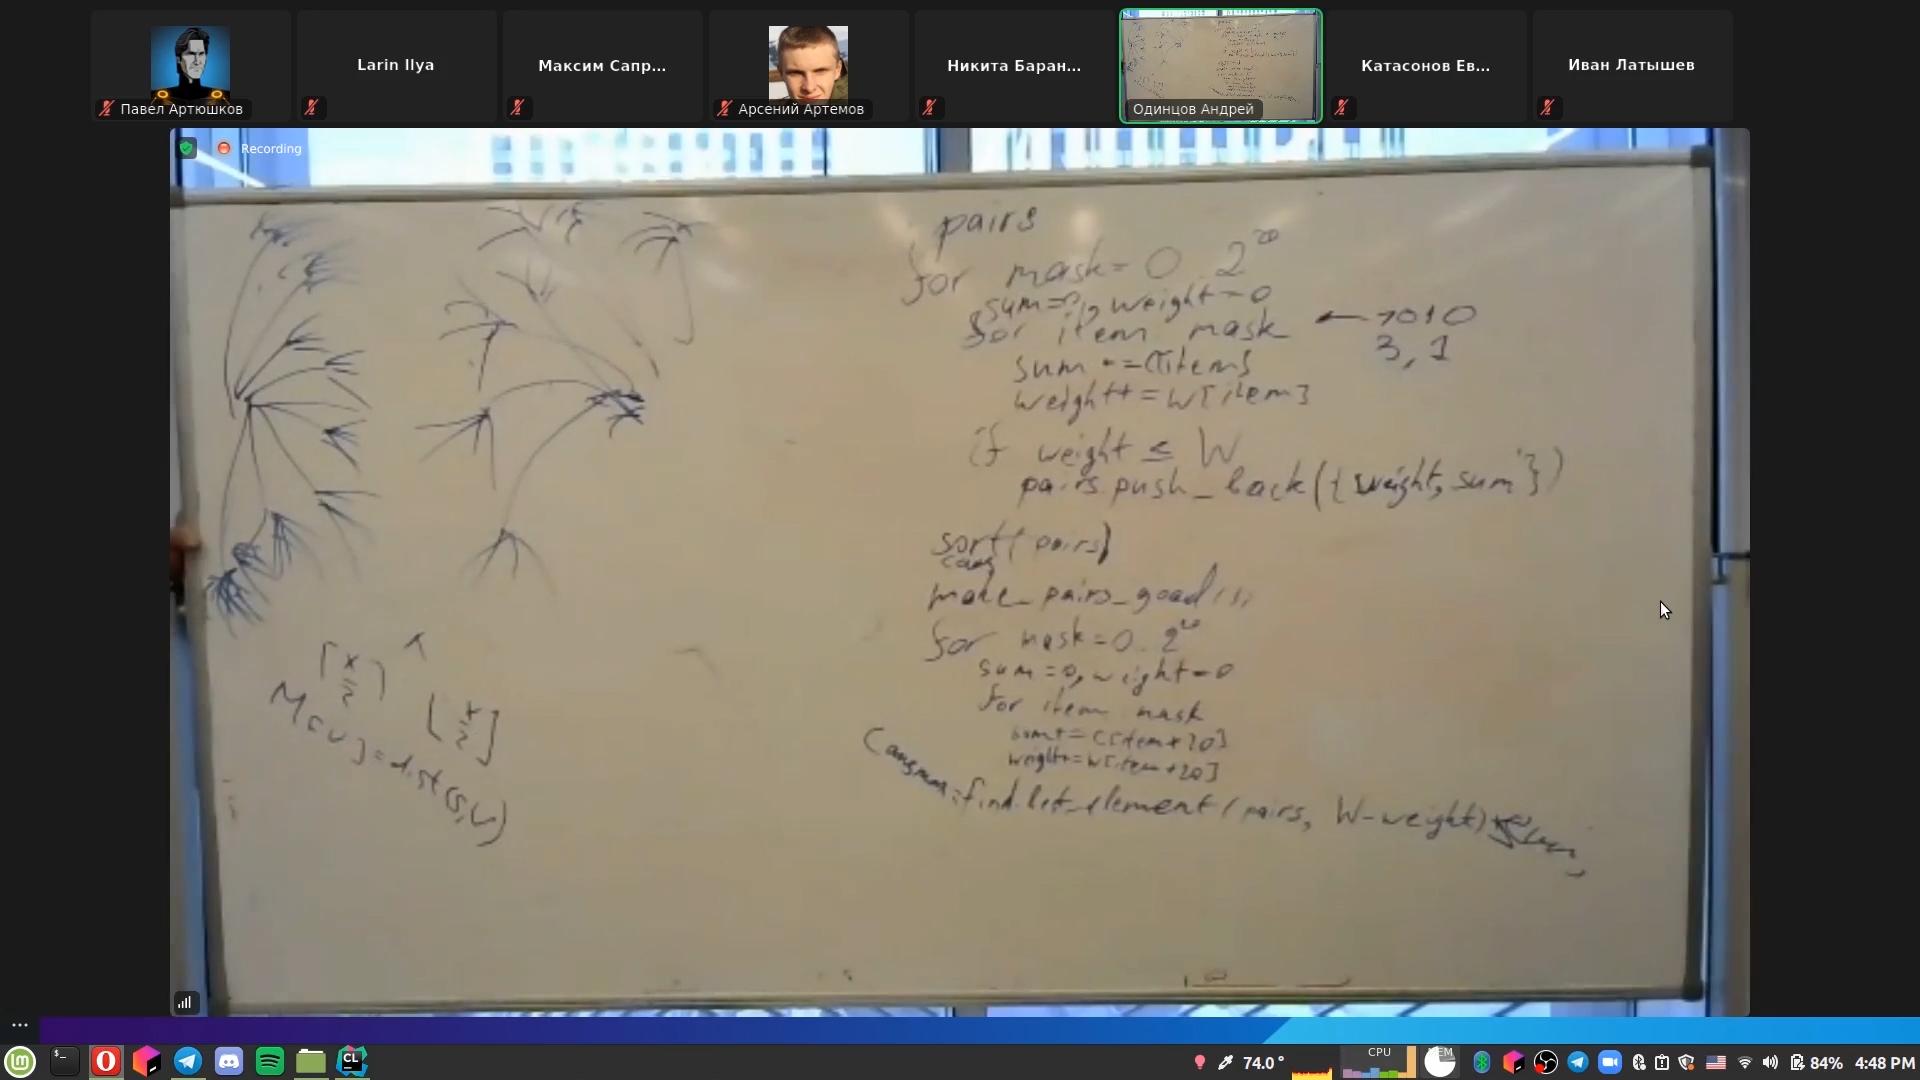 Павел Артюшков
Larin Ilya
Максим Сапр...
Арсений Артемов
Никита Баран...
Одинцов Андрей
Катасонов Ев...
Иван Латышев
Recording
pairs
for mask = 0..2^20
sum=0, weight=0
for item mask ← 1010
3, 1
sum += C[item]
weight += w[item]
if weight ≤ W
pairs.push_back({weight, sum})
sort(pairs)
make_pairs_good();
for mask=0..2^20
sum=0, weight=0
for item mask
sum+=C[item+20]
weight+=w[item+20]
element(pairs, W-weight)
⌈x/2⌉
⌊x/2⌋
M[v]=dist(s,v)
CL
CPU
74.0°
84%
4:48 PM